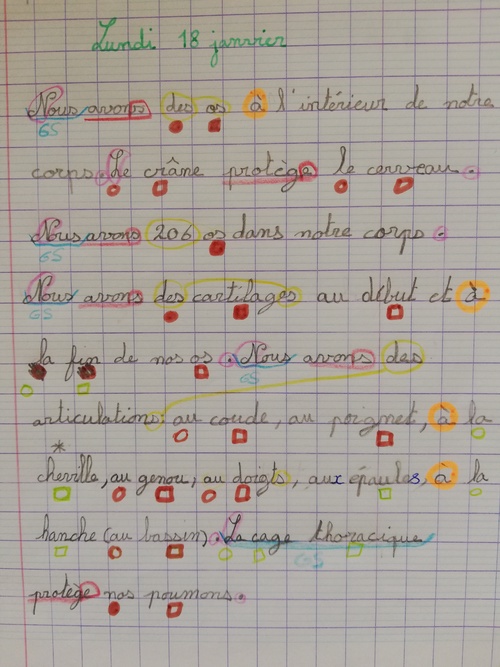 Lundi 18 janvier
Nous avons des os à l'intérieur de notre
GS
corps. Le crâne protège le cerveau.
Nous avons 206 os dans notre corps.
GS
Nous avons des cartilages au début et à
GS
la fin de nos os. Nous avons des
GS
articulations: au coude, au poignet, à la
*
cheville, au genou, au doigts, aux épaules, à la
hanche (au bassin). La cage thoracique
GS
protège nos poumons.